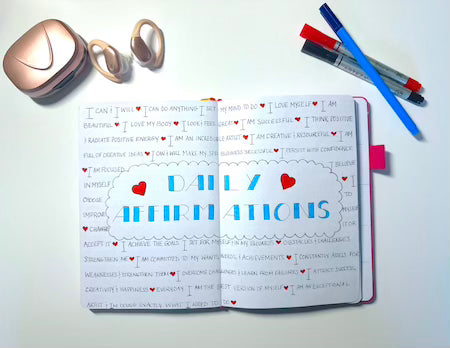 I CAN & I WILL ♥ I CAN DO ANYTHING I SET MY MIND TO DO ♥ I LOVE MYSELF ♥ I AM
BEAUTIFUL ♥ I LOVE MY BODY ♥ I LOOK & FEEL GREAT ♥ I AM SUCCESSFUL ♥ I THINK POSITIVE
& RADIATE POSITIVE ENERGY ♥ I AM AN INCREDIBLE ARTIST ♥ I AM CREATIVE & RESOURCEFUL ♥ I AM
FULL OF CREATIVE IDEAS ♥ I CAN & WILL MAKE MY BUSINESS SUCCESSFUL ♥ I PERSIST WITH CONFIDENCE
♥ I AM FOCUSED I BELIEVE
IN MYSELF I
CHOOSE TO
DAILY
AFFIRMATIONS
IMPROVE
♥ CHANGE OR
ACCEPT IT ♥ I ACHIEVE THE GOALS I SET FOR MYSELF OBSTACLES & CHALLENGES
STRENGTHEN ME ♥ I AM COMMITTED TO MY & ACHIEVEMENTS ♥ I CONSTANTLY ASSESS FOR
WEAKNESSES & STRENGTHEN THEM ♥ I OVERCOME CHALLENGES & LEARN FROM FAILURES ♥ I ATTRACT SUCCESS,
CREATIVITY & HAPPINESS ♥ EVERYDAY I AM THE BEST VERSION OF MYSELF ♥ I AM AN EXCEPTIONAL
ARTIST & I'M DOING EXACTLY WHAT I NEED TO DO ♥